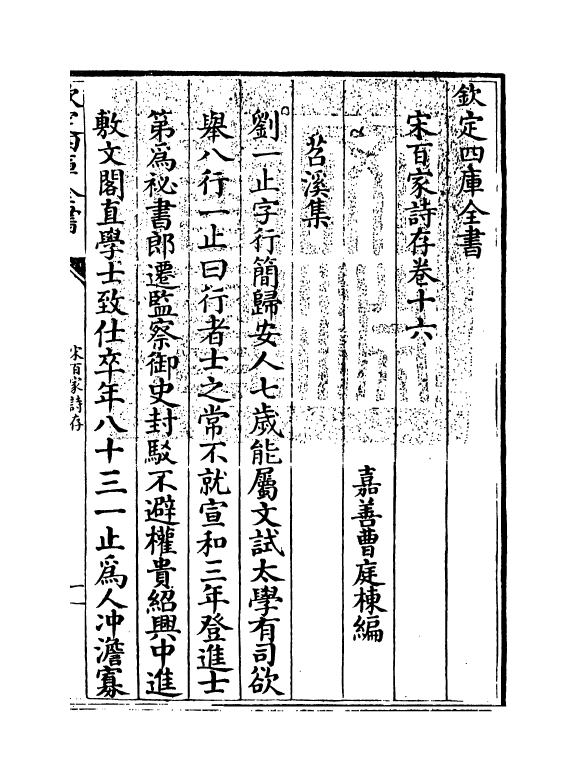 欽定四庫全書
宋百家詩存卷十六
嘉善曹庭棟編
苕溪集
劉一止字行簡歸安人七歲能屬文試太學有司欲
舉八行一止曰行者士之常不就宣和三年登進士
第爲祕書郎遷監察御史封駁不避權貴紹興中進
敷文閣直學士致仕卒年八十三一止爲人冲澹寡
宋百家詩存
一